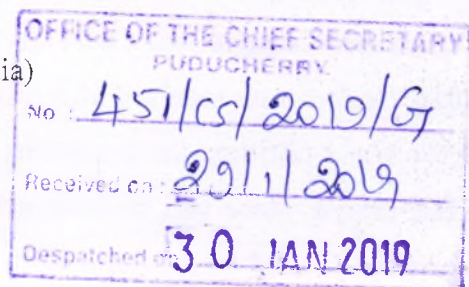 OFFICE OF THE CHIEF SECRETARY
PUDUCHERRY
ia)
No : 451/CS/2019/G
Received on : 29/1/2019
Despatched on 30 JAN 2019